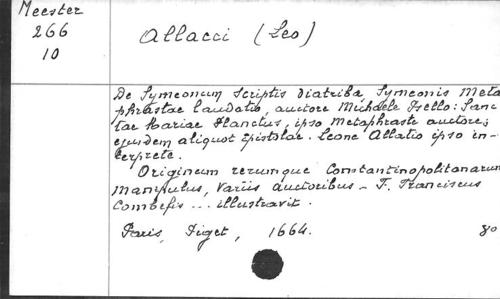 Meester
266
10
Allacci (Leo)
De Symeonum Scriptis diatriba, Symeonis Meta
phrastae laudatio, auctore Michaele Psello: Sanc
tae Mariae Planctus, ipso Metaphraste auctore;
ejusdem aliquot Epistolae. Leone Allatio ipso in-
terprete.
Originum rerumque Constantinopolitanarum
manipulus, variis auctoribus - F. Franciscus
Combefis ... illustravit.
Paris, Piget, 1664.
8o